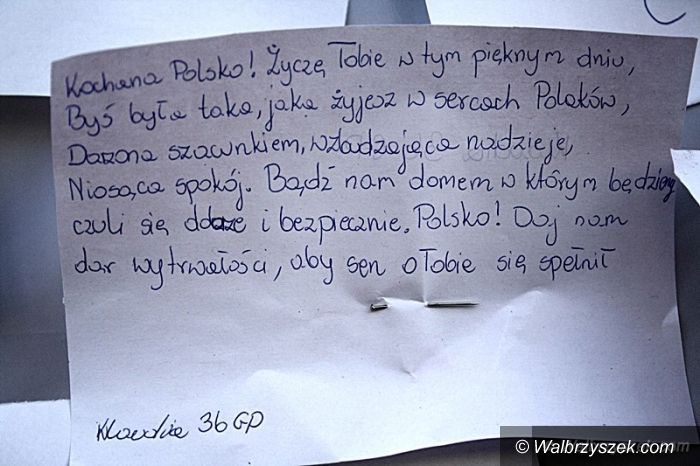 Kochana Polsko! Życzę Tobie w tym pięknym dniu,
Byś była taka, jaka żyjesz w sercach Polaków,
Darzona szacunkiem, wzladzająca nadzieję,
Niosąca spokój. Bądź nam domem w którym będziemy
czuli się dobrze i bezpiecznie. Polsko! Daj nam
dar wytrwałości, aby sen o Tobie się spełnił
Klaudia 3b GP
© Walbrzyszek.com